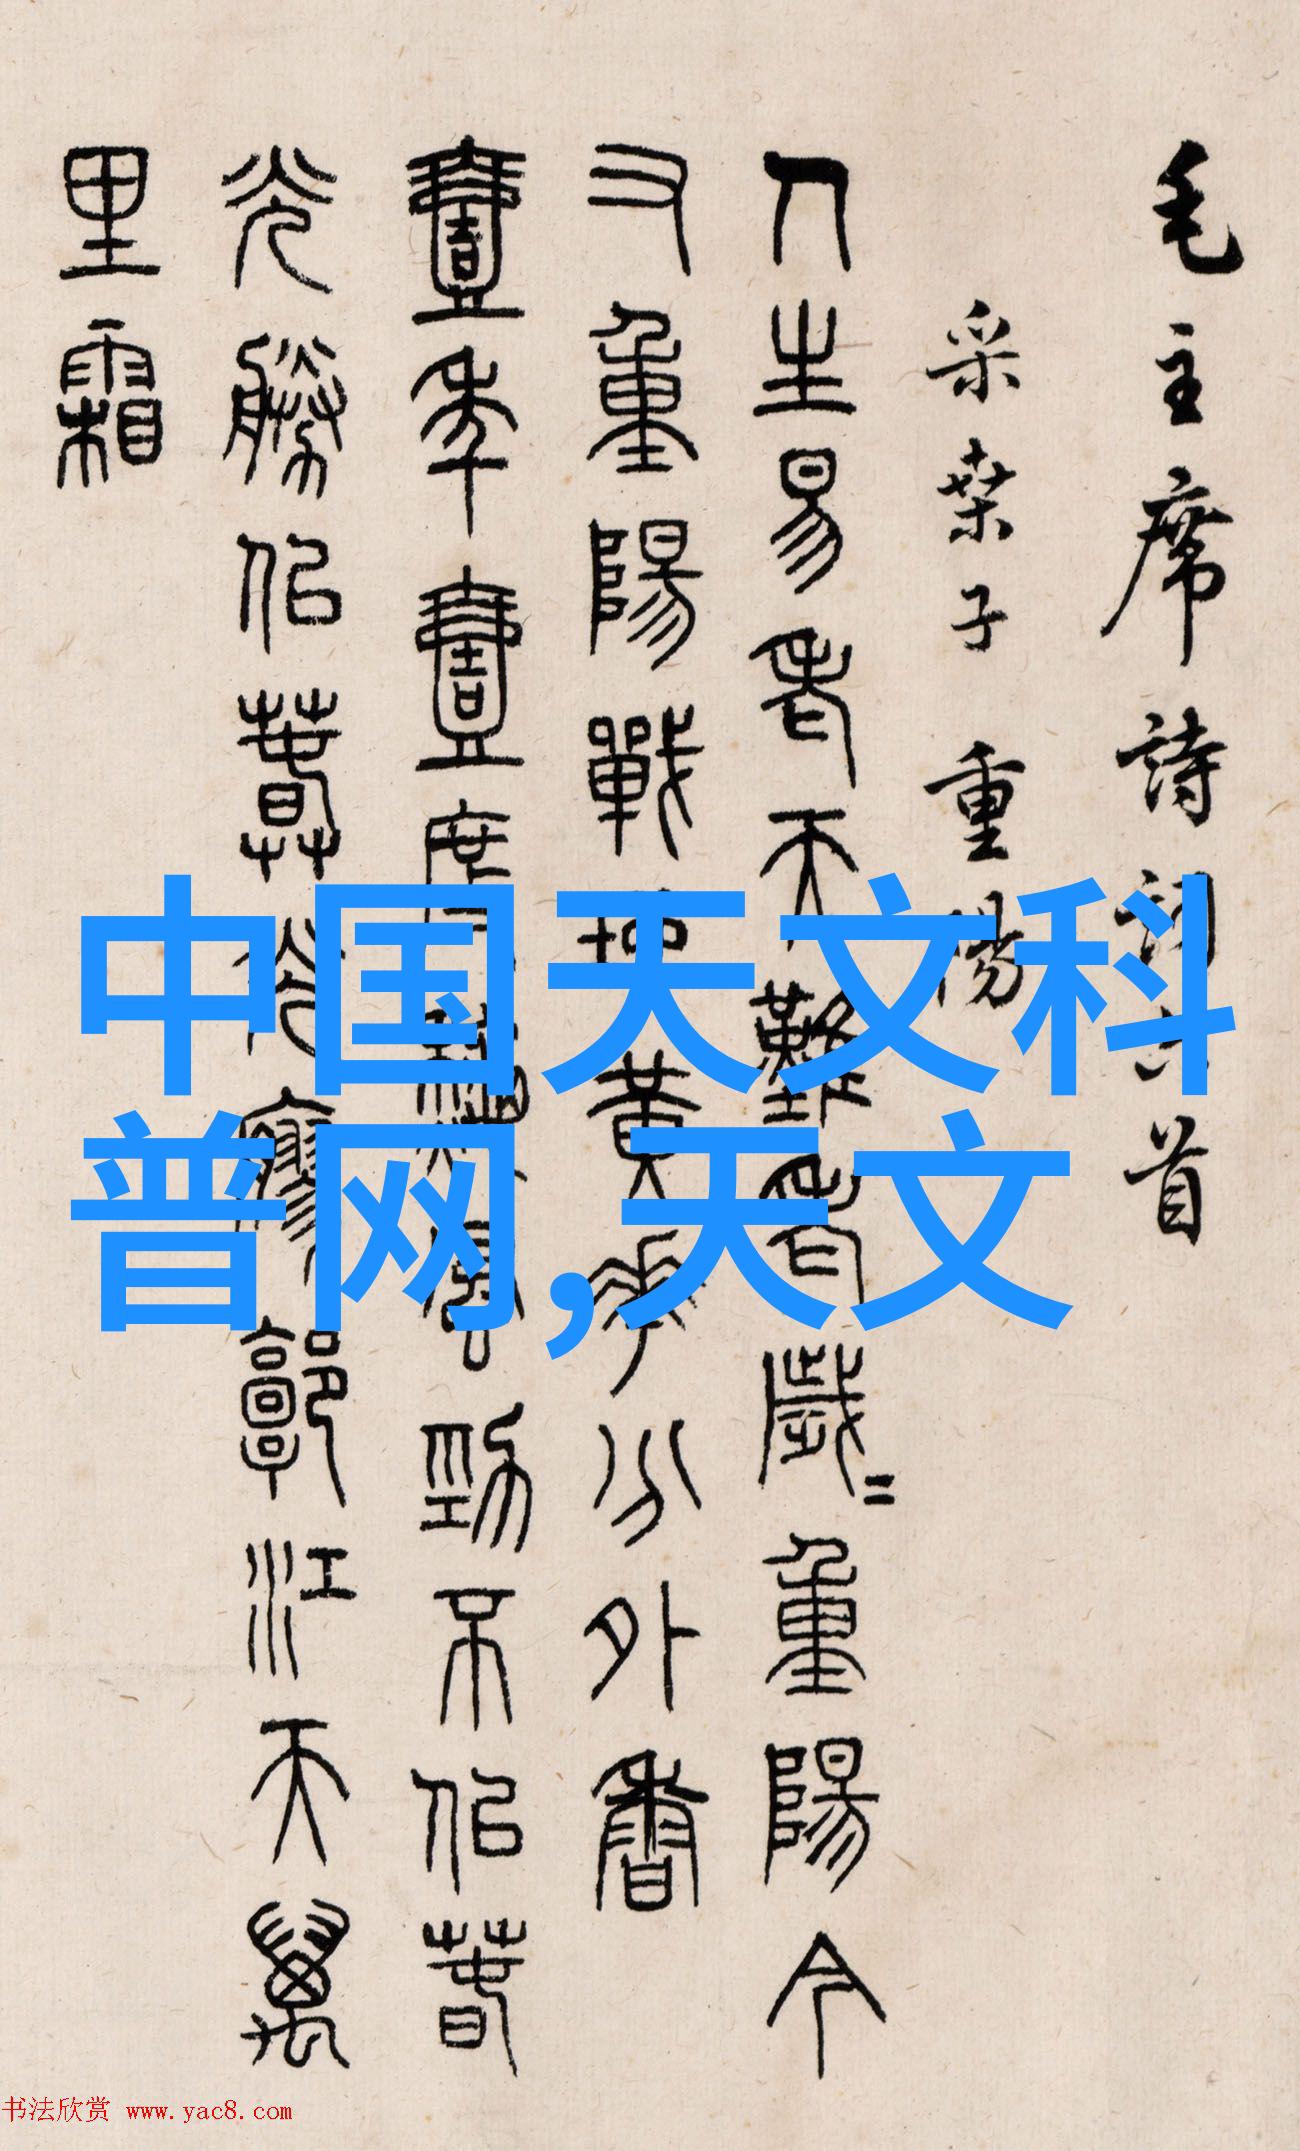 毛主席詩詞六首
采桑子 重陽
人生易老天難老歲〻重陽今
又重陽戰地黃華分外香
壹年壹度秋風勁不似春
光勝似春光寥郭江天萬
里霜
中国天文科
普网,天文
书法欣赏 www.yac8.com